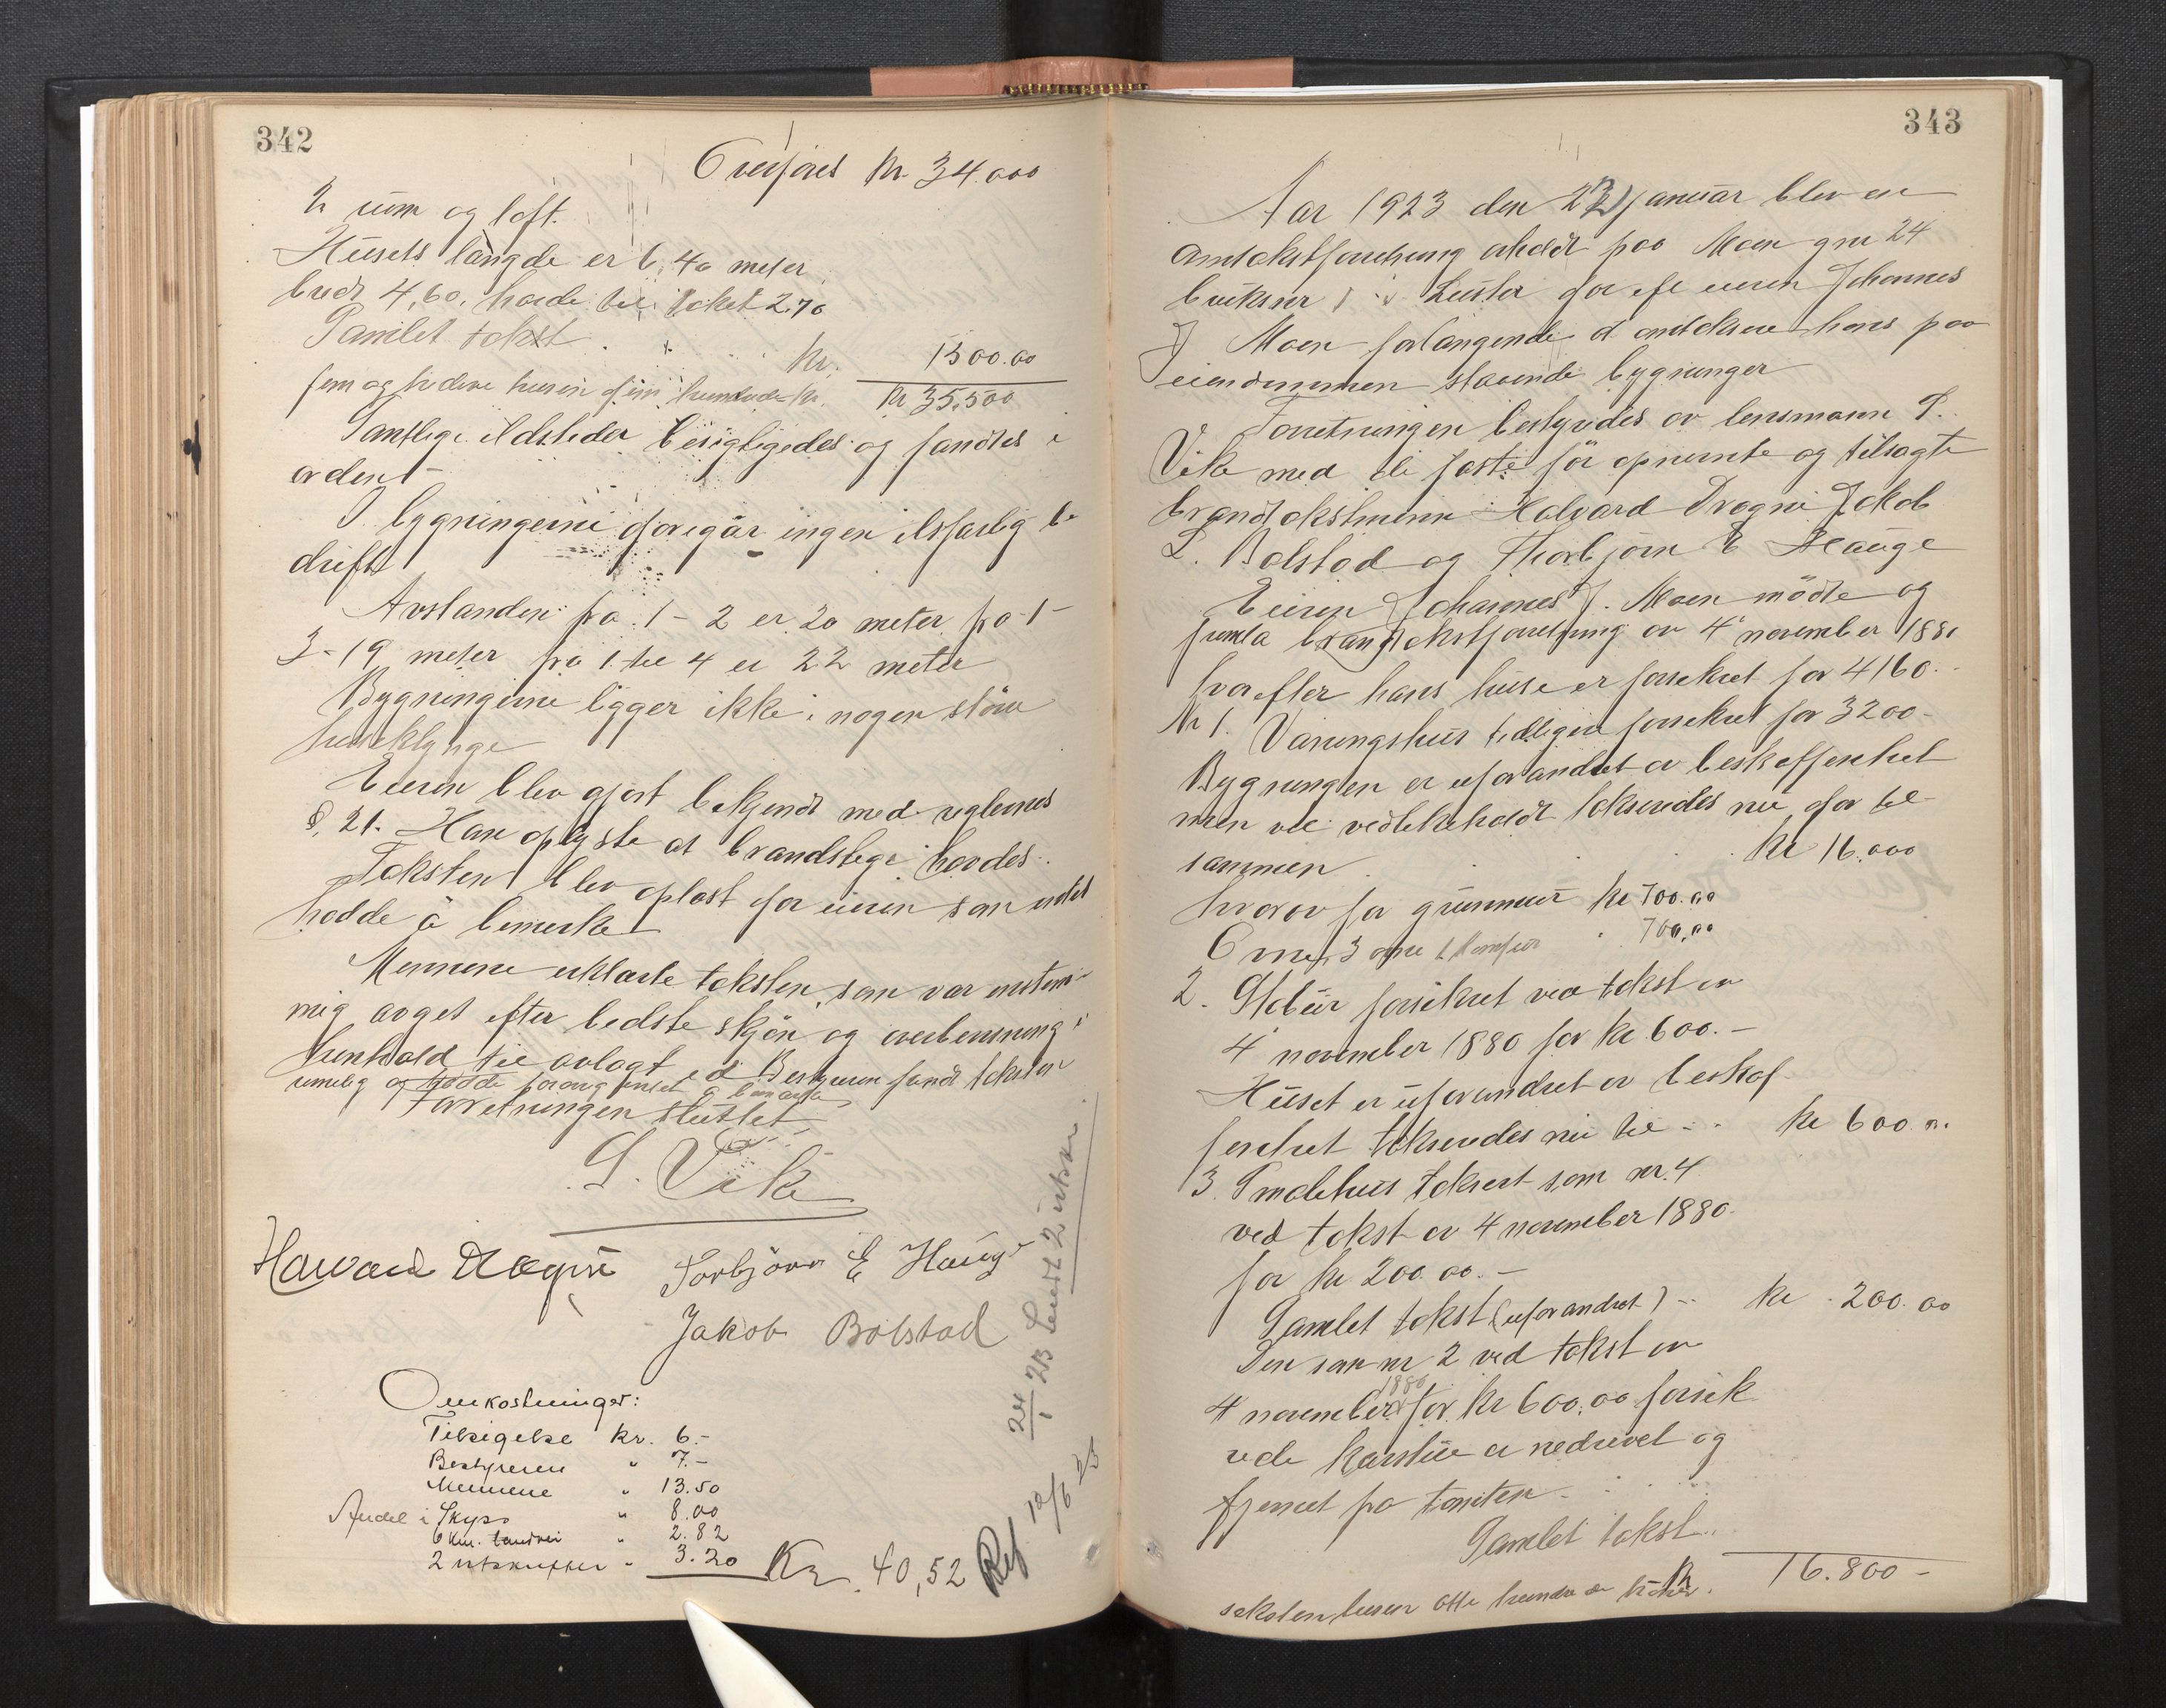 342
Overføres Kr. 34.000
rum og loft.
Husets længde er 6,40 meter
bredt 4,60, høide til taket 2.70
Samlet takst
Kr. 1500.00
fem og tredeve tusen fem hundrede kr. Kr 35.500
Samtlige ildsteder besigtigedes og fandtes i
orden
I bygningerne foregår ingen ilsfarlig be
drift
Avstanden fra 1 - 2 er 20 meter fra 1 -
3 - 19 meter fra 1 til 4 er 22 meter
Bygningerne ligger ikke i nogen større
huseklynge
Eieren blev gjort bekjendt med reglernes
§. 21. Han oplyste at brandstige havdes.
Taksten blev oplæst for eieren som intet
hadde å bemerke
Mennene erklærte taksten som var enstem-
mig avget efter bedste skjøn og overbevisning i
henhold til avlagt ed Bestyreren fandt taksten
rimelig og hadde forøvrig intet å bemærke
Forretningen sluttet
S. Vik
Havard Drægni Torbjørn E Haug
Jakob Bolstad
Omkostninger:
Tilsigelse kr. 6.-
Bestyreren " 7.-
Mennene " 13.50
Andel i Skyss " 8.00
6 km. landvei " 2.82
2 utskrifter " 3.20 Kr. 40,52
24/1 23 Levert 2 utskr.
Ref 10/6 23
343
Aar 1923 den 22 januar blev en
omtakstforretning avholdt paa Moen gnr 24
bruksnr 1 i Luster for efe eieren Johannes
J Moen forlangende at omtaksere hans paa
eiendommen staaende bygninger
Forretningen bestyredes av lensmann S.
Vik med de faste før opnevnte og tilsagte
brandtakstmenn Halvard Drægni Jakob
L. Bolstad og Thorbjørn E Hauge
Eieren Johannes J. Moen mødte og
fremla brandtakstforretning av 4 november 1880
hvorefter hans huse er forsikret for 4160.-
Nr 1. Vaaningshus tidligere forsikret for 3200 -
Bygningen er uforandret av beskaffenhet
men vel vedlikeholdt takseredes nu for til
sammen kr 16.000
hvorav for grunnmur kr 700.00
Ovner, 3 " 700,00
2. Stabur forsikret ved takst av
4 november 1880 for kr 600.-
Huset er uforandret av beskaf
fenhet takseredes nu til kr 600.00
3. Smalehus taksert som nr. 4
ved takst av 4 november 1880
for kr 200.00.-
Samlet takst (uforandret) kr 200.00
Den som nr 2 ved takst av
4 november 1880 for kr 600.00 forsik
rede karstue er nedrevet og
fjernet fra tomten
Samlet takst
Kr 16.800 -
seksten tusen otte hundrede kroner.